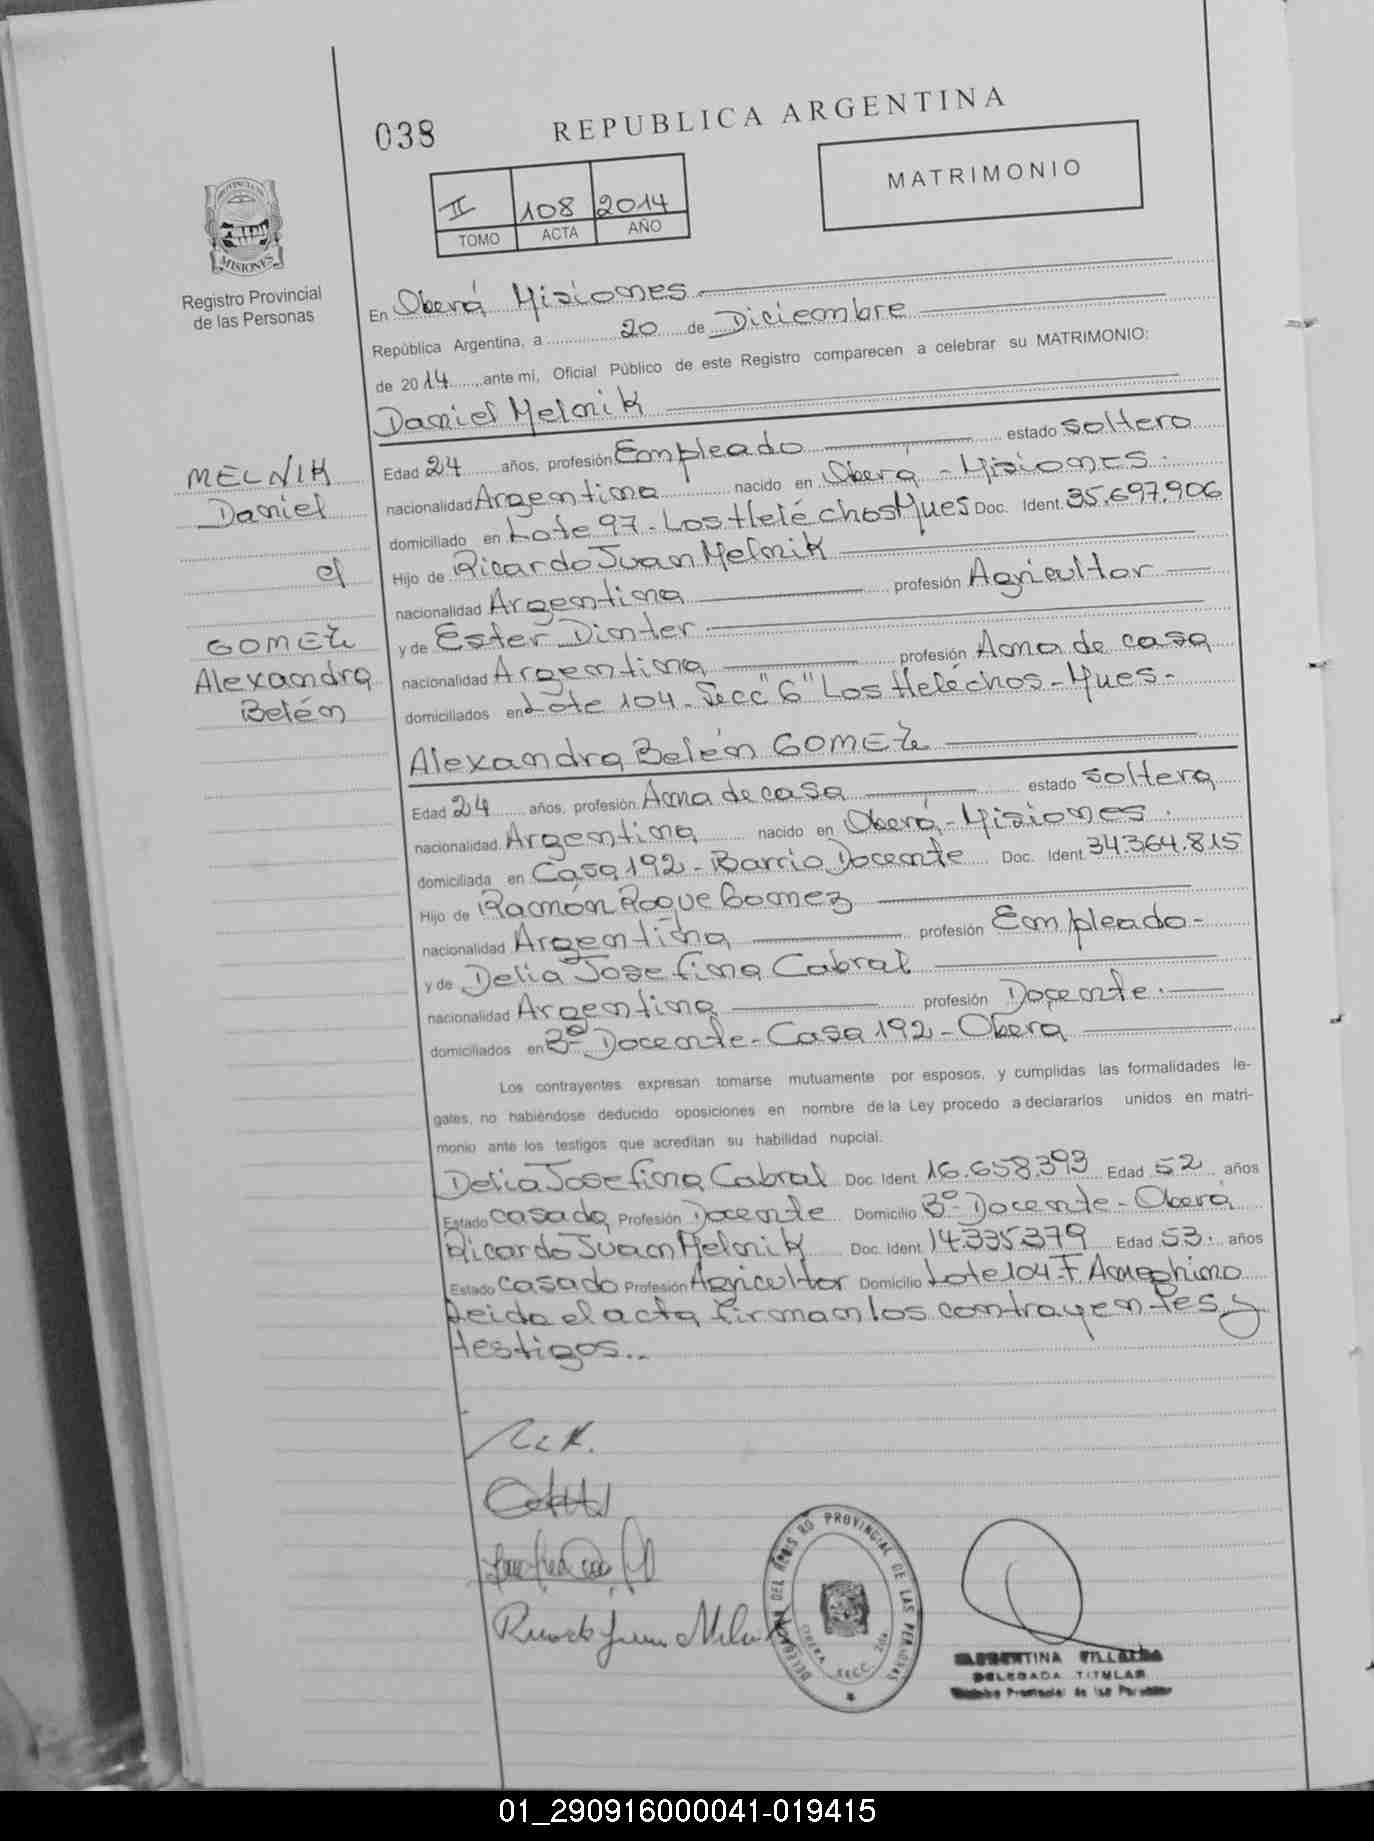 038
REPUBLICA ARGENTINA
II 108 2014
TOMO ACTA AÑO
MATRIMONIO
PROVINCIA DE
MISIONES
Registro Provincial
de las Personas
En Oberá Misiones
República Argentina, a 20 de Diciembre
de 2014 ante mi, Oficial Público de este Registro comparecen a celebrar su MATRIMONIO:
Daniel Melnik
MELNIK
Daniel
c/
GOMEZ
Alexandra
Belén
Edad 24 años, profesión Empleado estado soltero
nacionalidad Argentina nacido en Oberá - Misiones.
domiciliado en Lote 97 - Los Heléchos Mnes Doc. Ident. 35.697.906
Hijo de Ricardo Juan Melnik
nacionalidad Argentina profesión Agricultor
y de Ester Dinter
nacionalidad Argentina profesión Ama de casa
domiciliados en Lote 104 - Secc "6" Los Heléchos - Mnes -
Alexandra Belén GOMEZ
Edad 24 años, profesión Ama de casa estado soltera
nacionalidad Argentina nacido en Oberá - Misiones.
domiciliada en Casa 192 - Barrio Docente Doc. Ident. 34.364.815
Hijo de Ramón Roque Gomez
nacionalidad Argentina profesión Empleado -
y de Delia Josefina Cabral
nacionalidad Argentina profesión Docente.
domiciliados en Bº Docente - Casa 192 - Obera
Los contrayentes expresan tomarse mutuamente por esposos, y cumplidas las formalidades le-
gales, no habiéndose deducido oposiciones en nombre de la Ley procedo a declararlos unidos en matri-
monio ante los testigos que acreditan su habilidad nupcial.
Delia Josefina Cabral Doc. Ident. 16.658.393 Edad 52 años
Estado casada Profesión Docente Domicilio Bº Docente - Oberá
Ricardo Juan Melnik Doc. Ident. 14.335.379 Edad 53. años
Estado casado Profesión Agricultor Domicilio Lote 104 - F. Ameghino
Leida el acta firman los contrayentes y
testigos..
Ricardo Juan Melnik
DELEGACION DEL REGISTRO PROVINCIAL DE LAS PERSONAS
OBERA SECC.
ARGENTINA VILLALBA
DELEGADA TITULAR
Registro Provincial de las Personas
01_290916000041-019415